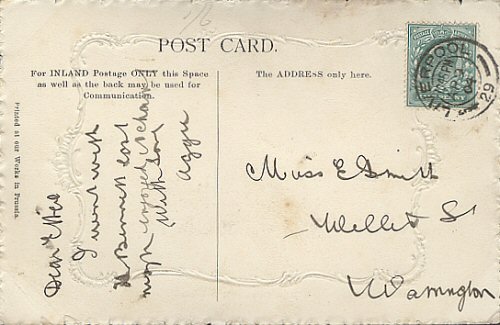 POST CARD.
For INLAND Postage ONLY this Space
as well as the back may be used for
Communication.
The ADDRESS only here.
Printed at our Works in Prussia.
Dear
I went with
Bennett last
night enjoyed it
With love
Aggie
Miss E Smith
Mellet St
Warrington
LIVERPOOL
29